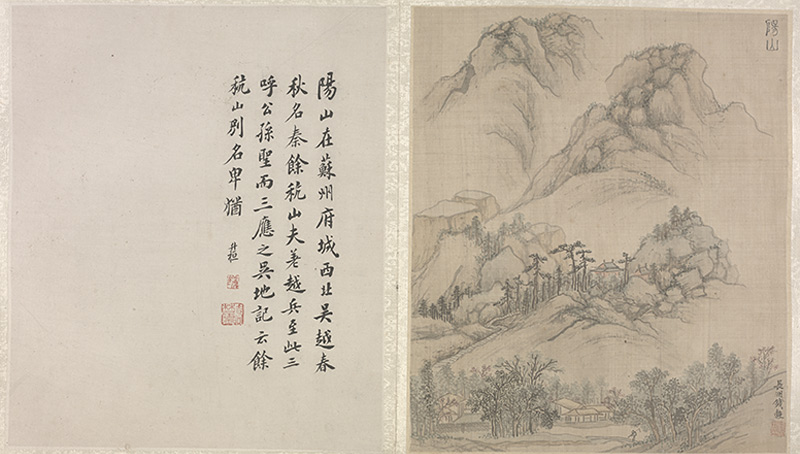 陽山
長洲錢
陽山在蘇州府城西北吳越春
秋名秦餘秔山夫差越兵至此三
呼公孫聖而三應之吳地記云餘
秔山別名卑猶